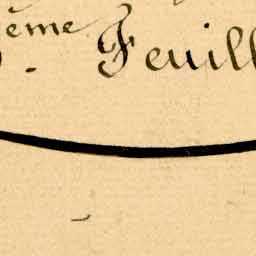 ème Feuill